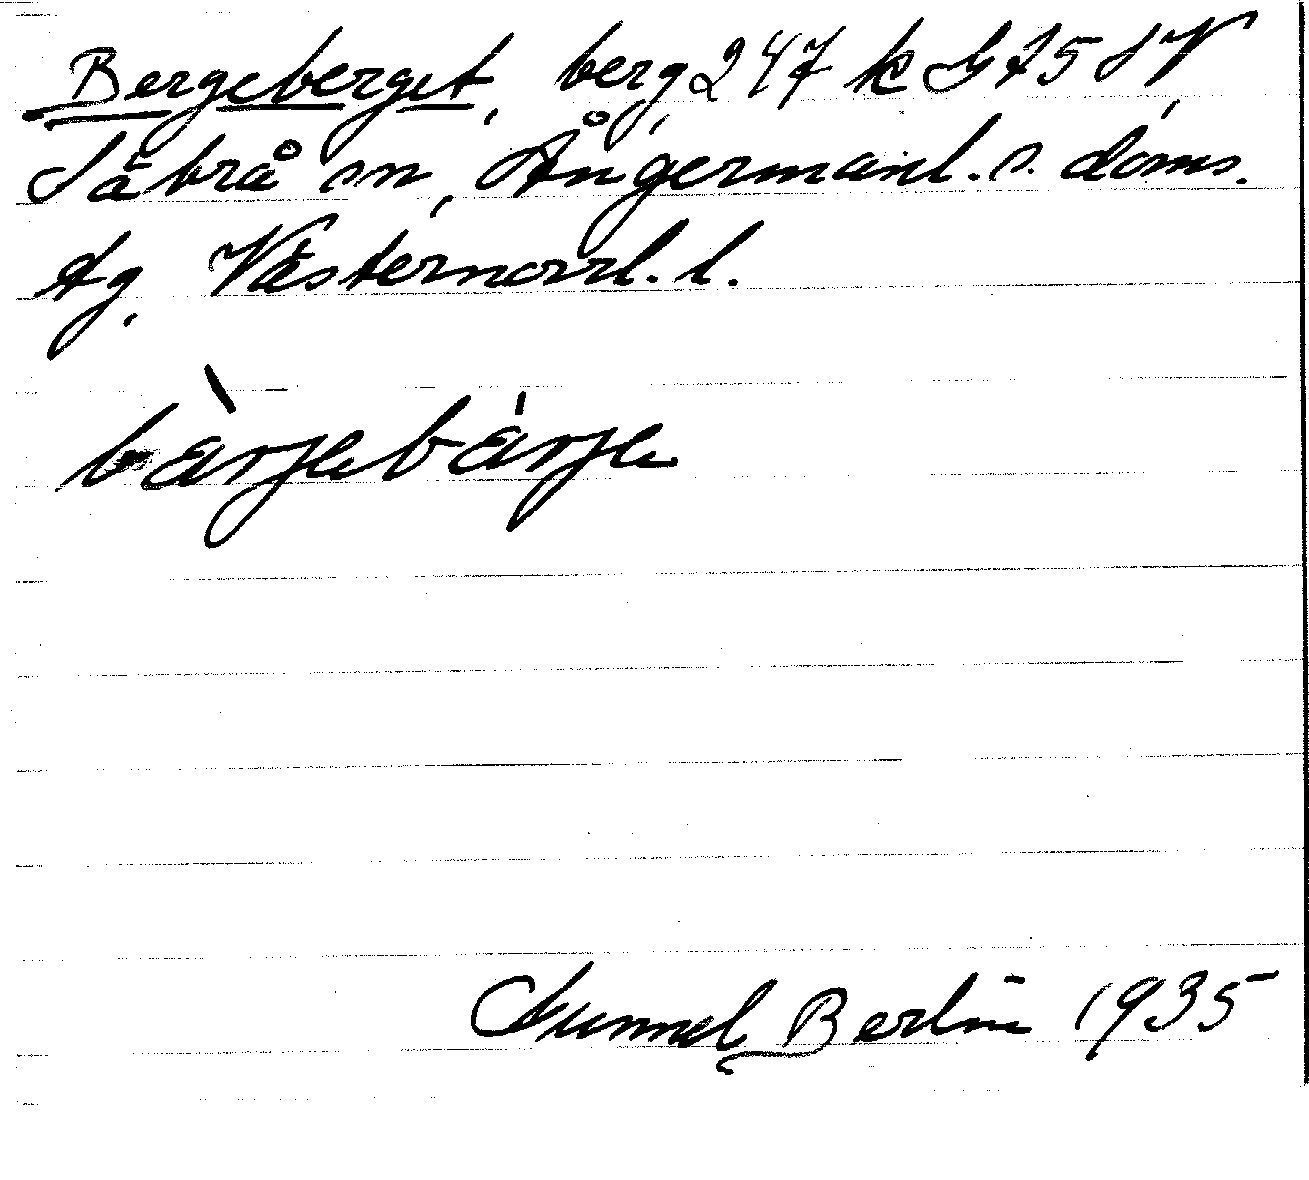 Bergeberget, berg, 247 k G 75 SV,
Säbrå sn, Ångermanl. s. doms.
tg. Västernorrl. l.
bàrjebárje
Gunnel Berlin 1935